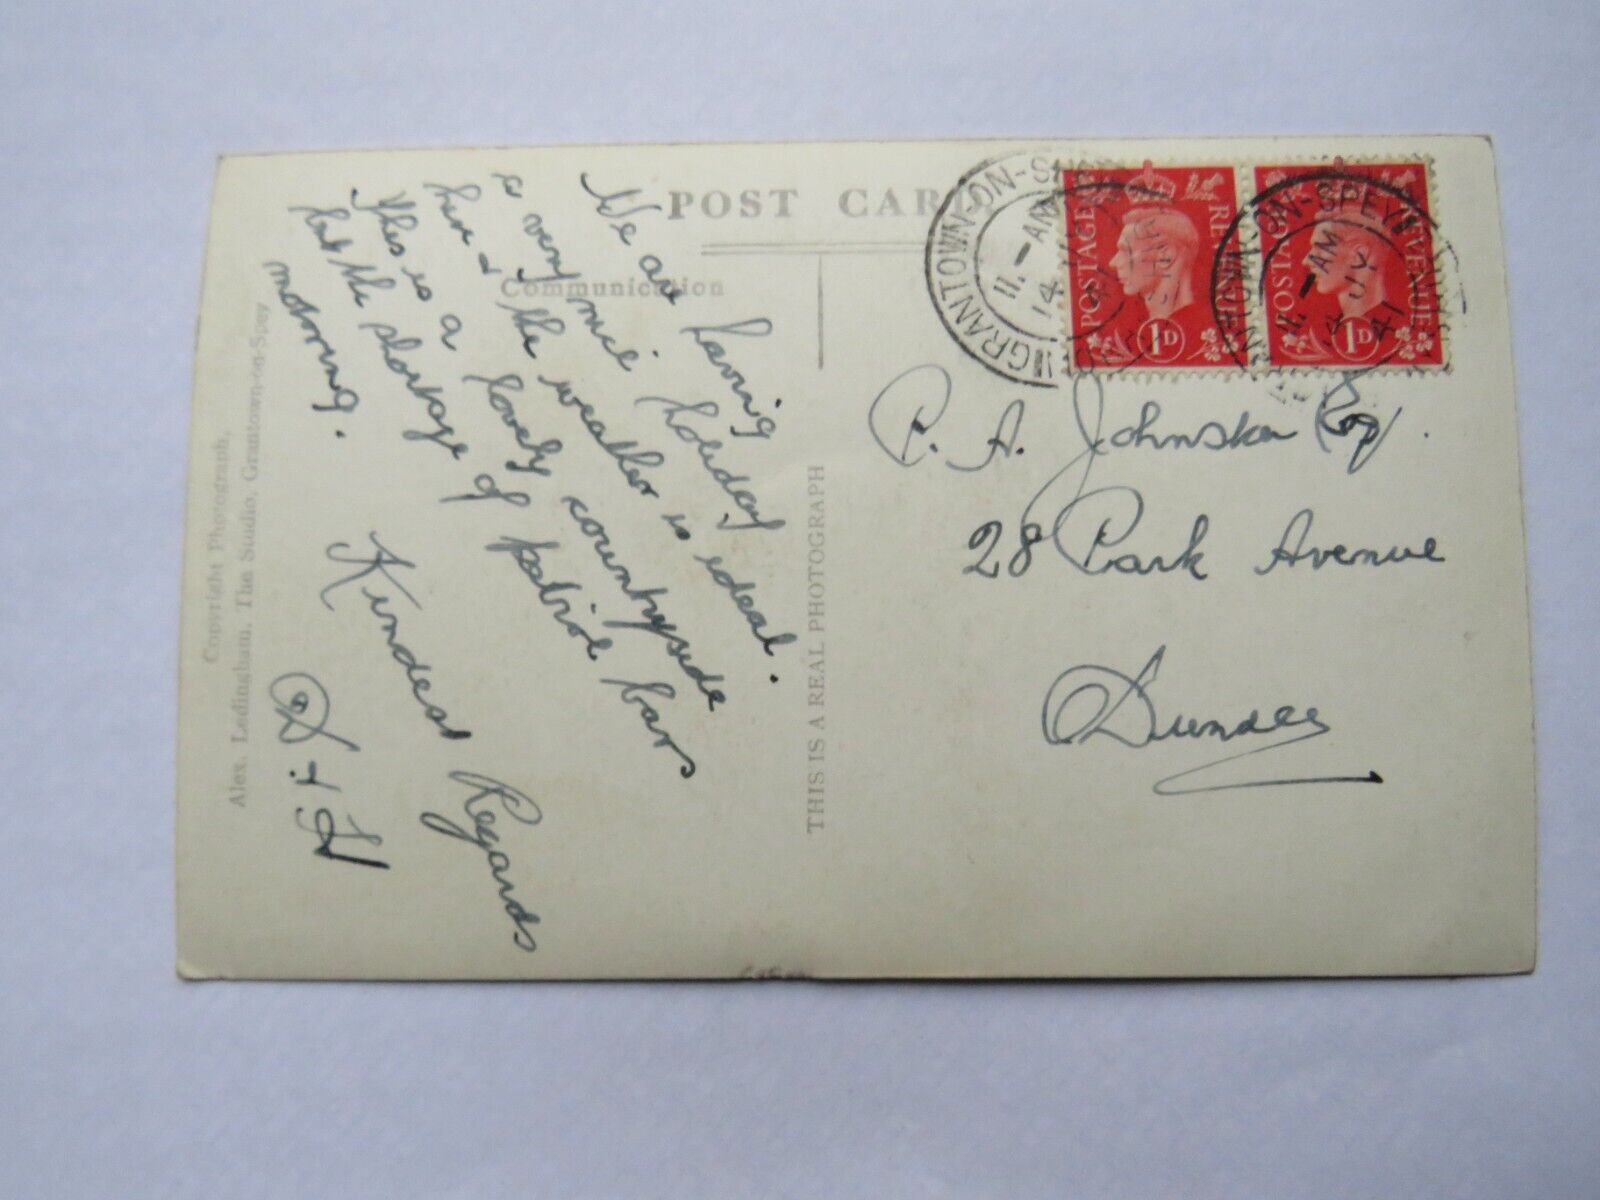 POST CARD
Communication
We are having
a very nice holiday
here & the weather is ideal.
This is a lovely countryside
but the shortage of petrol bars
motoring.
Kindest Regards
D. & H
Copyright Photograph,
Alex. Ledingham, The Studio, Grantown-on-Spey
THIS IS A REAL PHOTOGRAPH
GRANTOWN-ON-SPEY
11 - AM
14 JY
41
POSTAGE REVENUE
1D
GRANTOWN-ON-SPEY
11 - AM
14 JY
41
POSTAGE REVENUE
1D
P. A. Johnston Esq.
28 Park Avenue
Dundee